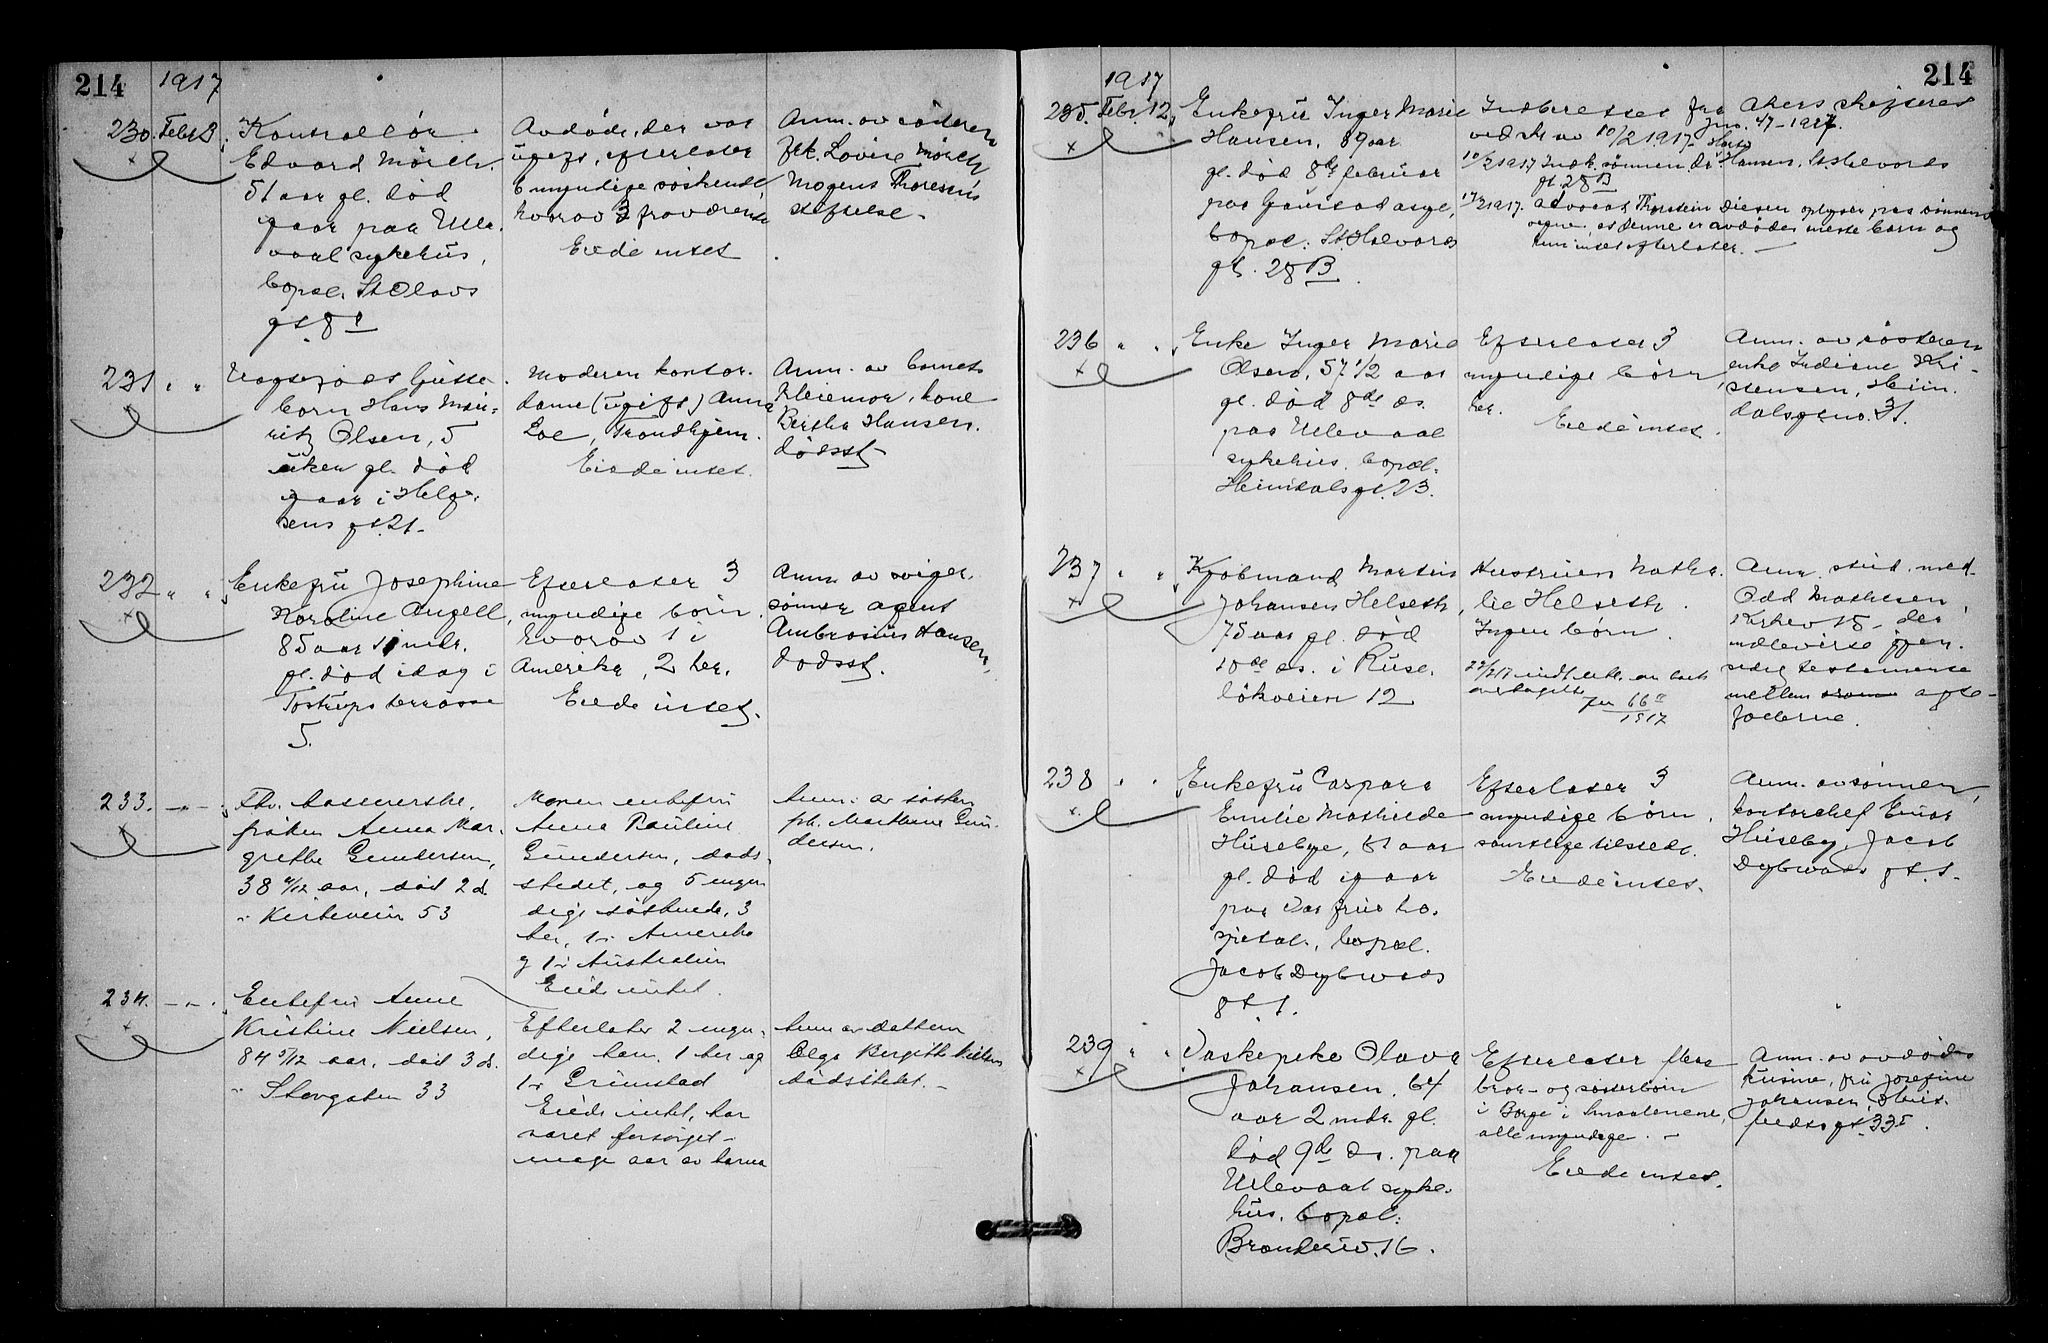 214
1917
230. Febr.
Kontrollör
Edvard Mörch.
51 aar gl. död
igaar paa Ulle
vaal sykehus,
bopæl. St Olavs
gt. 8
Avdöde, der var
ugift, efterlater
6 myndige söskende
hvorav 3 fraværende
Eiede intet
Anm. av söster
frk. Lovise Mörch
Mogens Thoresens
stiftelse.
231. " "
born Hans Mau-
ritz Olsen, 5
uker gl. död
igaar i Helge-
sens gt. 21.
Moderen kontor-
dame (ugift) Anna
Loe, Trondhjem.
Eiede intet.
Anm. av barnets
pleiemor, kone
Bertha Hansen.
dödsst.
232 " "
Enkefru Josephine
Karoline Angell,
85 aar 1 mdr.
gl. död idag i
Tostrups terrasse
5.
Efterlater 3
myndige börn
hvorav 1 i
Amerika, 2 her.
Eiede intet.
Anm. av sviger-
sönnen agent
Ambrosius Hansen,
dödsst.
233. — " —
Fhv.
fröken Anna Mar-
grethe Gundersen,
38 aar, död 2 d.
i Kirkeveien 53
Moren enkefru
Anna Pauline
Gundersen, döds-
stedet, og 5 myn-
dige söskende, 3
her, 1 i Amerika
og 1 i Australien
Eiede intet.
Anm. av söster
frk. Marthine Gun-
dersen.
234. — " —
Enkefru Anne
Kristine Nielsen,
84 aar, död 3 ds.
i Storgaten 33
Efterlater 2 myn-
dige barn. 1 her og
1 i Grimstad
Eiede intet, har
været forsörget
mange aar av barna
Anm av datteren
Olga Birgitte Nielsen
dödsstedet. —
214
1917
235. Febr. 12.
Enkefru Inger Marie
Hansen, 89 aar
gl. död 8de februar
paa Gaustad asyl,
bopæl: St. Halvards
gt. 28 B.
Indberettet fra Akers skifteret
ved skr av 10/2 1917. jno. 47-1917.
sönnen Dr. Hansen, St. Halvards
gt. 28 B
17/2 1917. Advocat Thorstein Diesen oplyser paa sönnens
vegne, at denne er avdödes eneste barn og
hun intet efterlater. —
236 " "
Enke Inger Marie
Olsen, 57 1/2 aar
gl. död 8de ds.
paa Ullevaal
sykehus. bopæl.
Heimdalsgt. 23.
Efterlater 3
myndige börn
her.
Eiede intet.
Anm. av sösteren
enke Indiane Kri-
stensen, Heim-
dalsgt no. 31.
237 " "
Kjöbmand Martin
Johansen Helseth,
75 aar gl. död
10de ds. i Ruse-
lökveien 12
Hustruen Matha-
lie Helseth.
Ingen börn.
66
1917
Anm. stud. med.
Odd Mathesen,
Kirkev 15 der
indleverte gjen-
sidig testamente
mellem ægte-
fællerne.
238 " "
Enkefru Caspara
Emilie Mathilde
Huseby, 61 aar
gl. död igaar
paa Vor frue ho-
spital, bopæl.
Jacob Dybwads
gt. 1.
Efterlater 3
myndige börn,
samtlige tilstede.
Eiede intet.
Anm. av sönnen,
kontorchef Einar
Huseby, Jacob
Dybwads gt. 1.
239 " "
Vaskepike Olava
Johansen, 64
aar 2 mdr. gl.
död 9de ds. paa
Ullevaal syke-
hus. bopæl:
Brenneriv. 16.
Efterlater flere
bror- og sösterbörn
i Borge i Smaalenene,
alle myndige. —
Eiede intet.
Anm. av avdödes
kusine, fru Josefine
Johansen,
feldts gt. 33